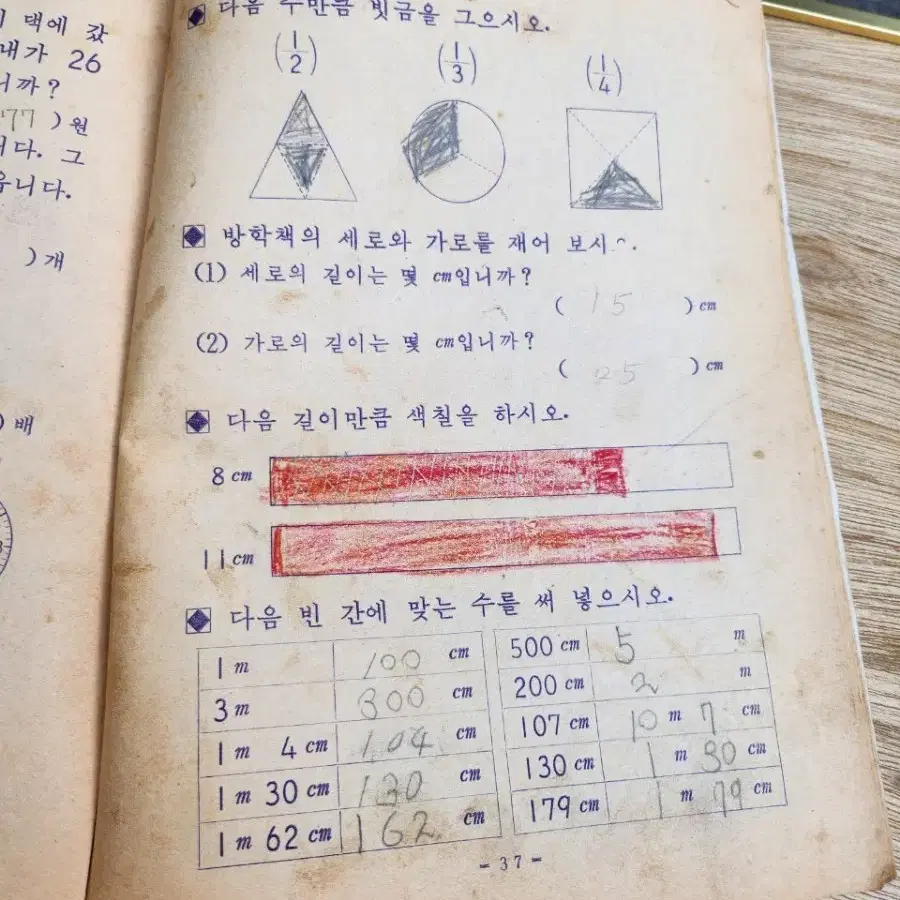 택에 갔
내가 26
니까?
77 ) 원
니다. 그
웁니다.
) 개
) 배
다음 수만큼 빗금을 그으시오.
(1/2) (1/3) (1/4)
방학책의 세로와 가로를 재어 보시
(1) 세로의 길이는 몇 cm입니까?
( 15 ) cm
(2) 가로의 길이는 몇 cm입니까?
( 25 ) cm
다음 길이만큼 색칠을 하시오.
8 cm
11 cm
다음 빈 간에 맞는 수를 써 넣으시오.
1 m 100 cm
3 m 300 cm
1 m 4 cm 104 cm
1 m 30 cm 130 cm
1 m 62 cm 162 cm
500 cm 5 m
200 cm 2 m
107 cm 10 m 7 cm
130 cm 1 m 30 cm
179 cm 1 m 79 cm
- 37 -